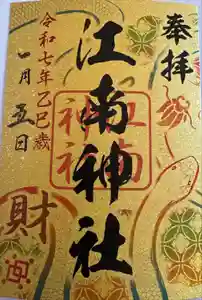 奉拝
江南神社
江南神社
令和七年乙巳歳
一月五日
財